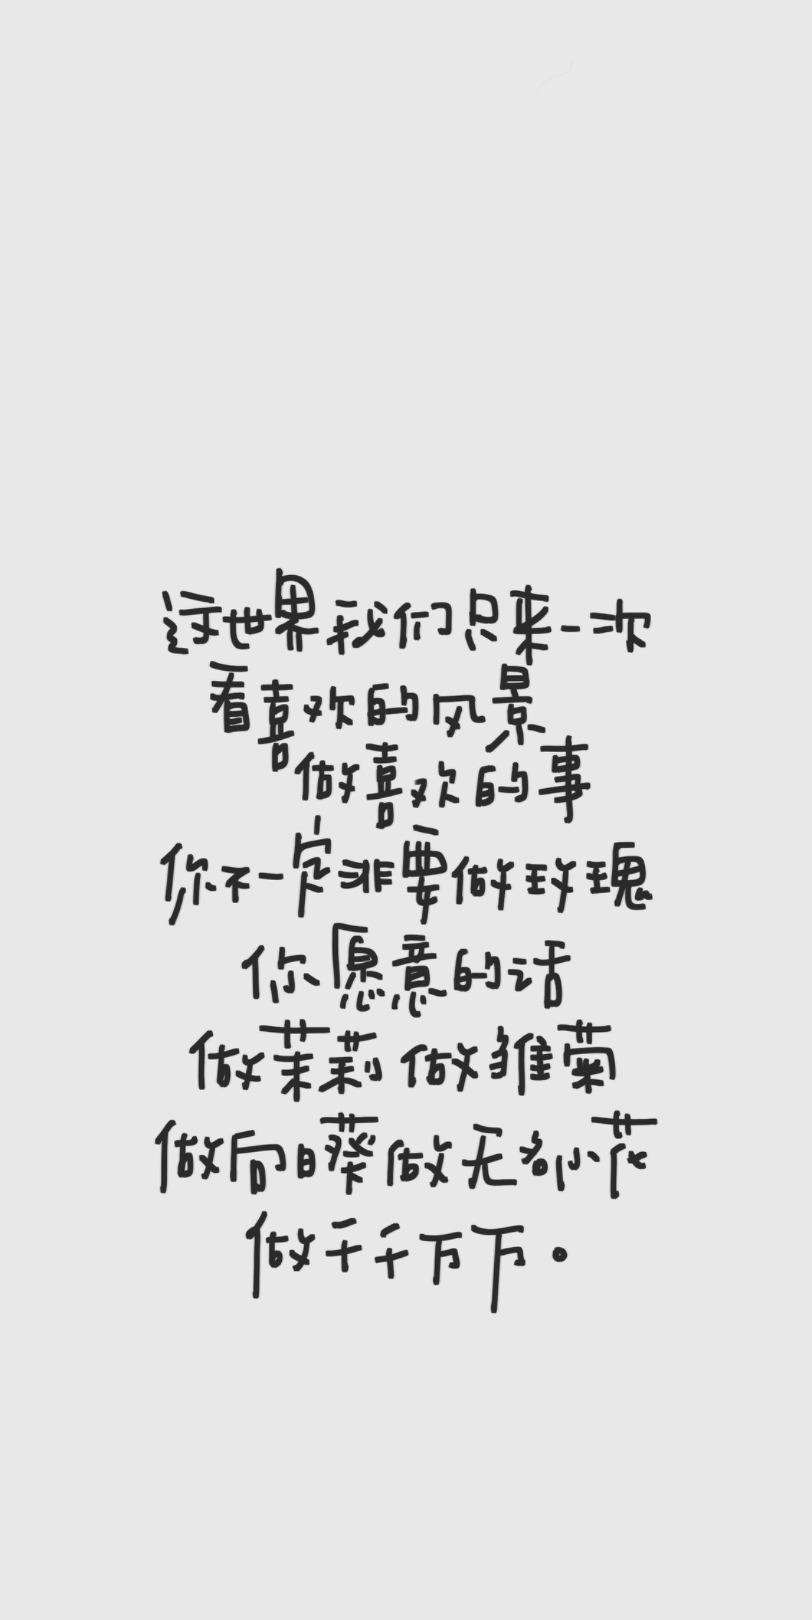 这世界我们只来一次
看喜欢的风景
做喜欢的事
你不一定非要做玫瑰
你愿意的话
做茉莉 做雏菊
做向日葵做无名小花
做千千万万。